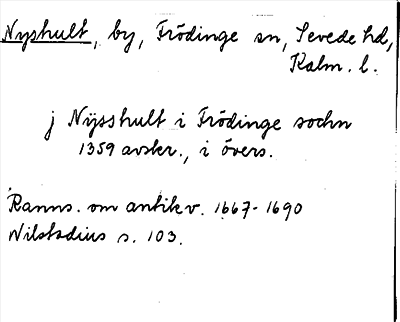 Nyshult, by, Frödinge sn, Sevede hd,
Kalm. l.
j Nÿsshult i Frödinge sochn
1359 avskr., i övers.
Ranns. om antikv. 1667-1690
Nilstadius s. 103.